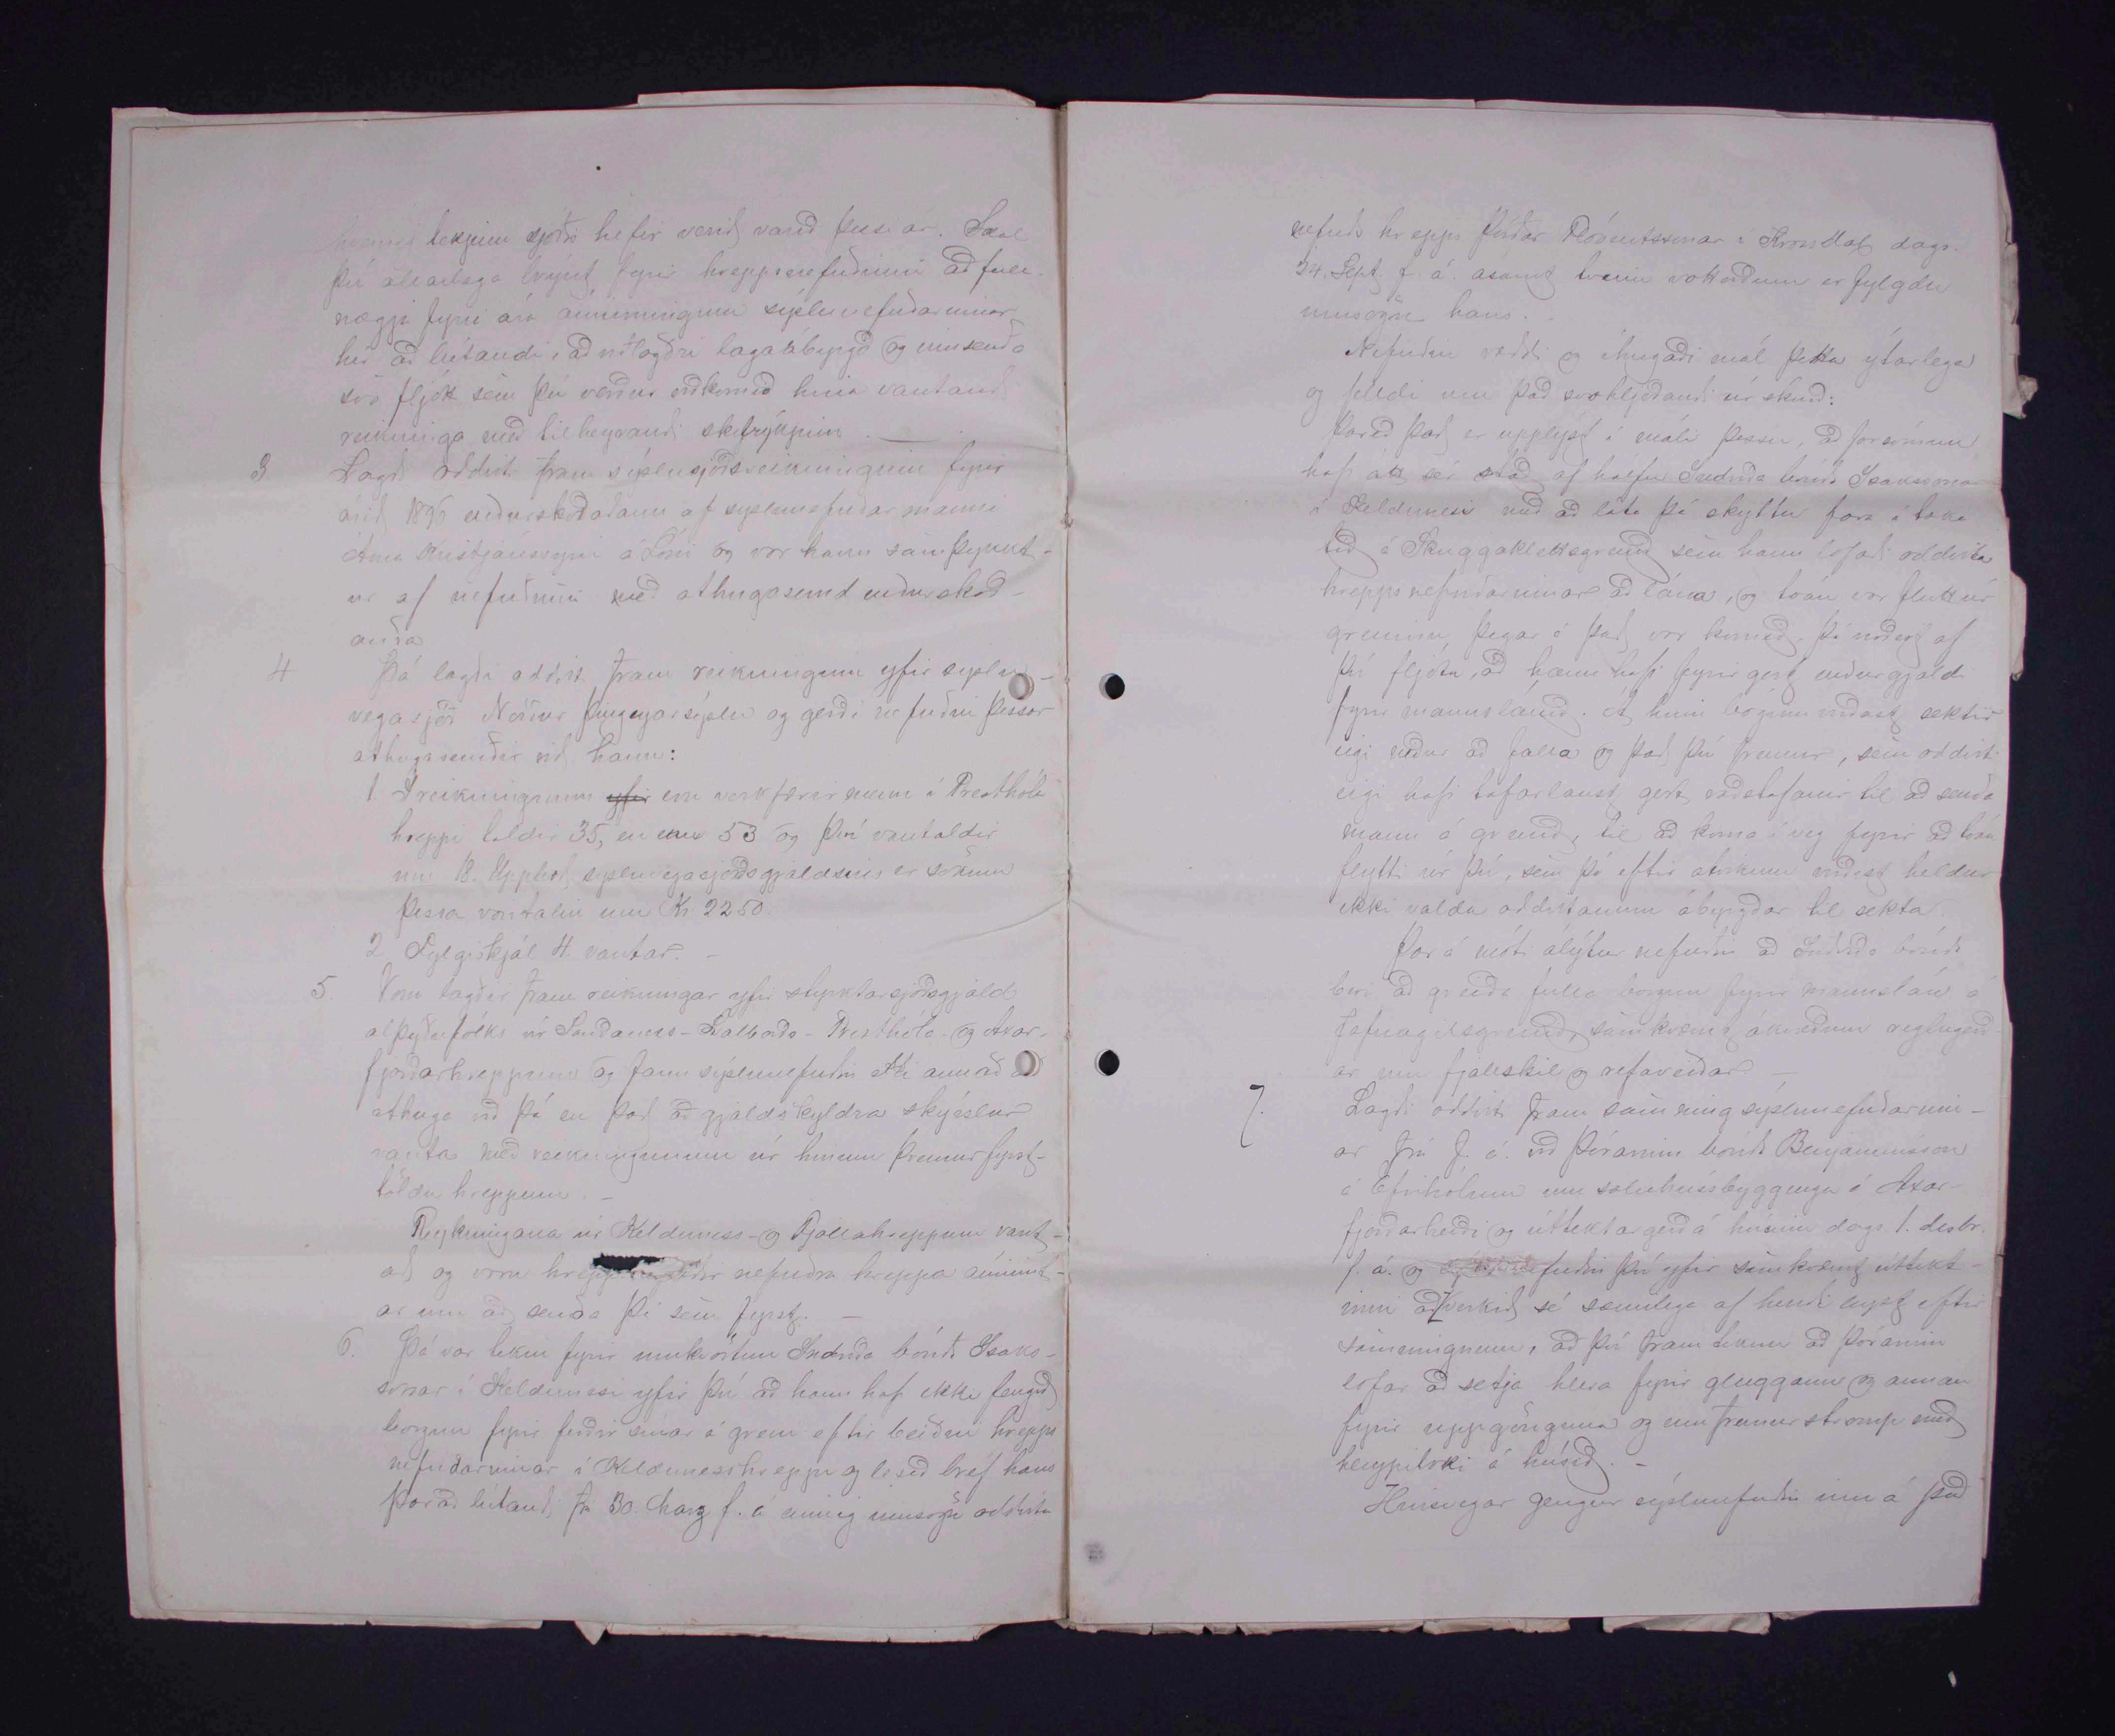 hvernig tekjum sjóðs hefir verið varið þessi ár. Skal
því alvarlega brýnt fyrir hreppsnefndinni að full-
nægja fyrri ára áminningum sýslunefndarinnar
hér að lútandi, að viðlagðri lagaábyrgð og innsenda
svo fljótt sem því verður viðkomið hina vantandi
reikninga með tilheyrandi skilríkjum. —
3. Lagði oddviti fram sýslusjóðsreikninginn fyrir
árið 1896 endurskoðaðann af sýslunefndarmanni
Árna Kristjánssyni á Lóni og var hann samþykkt-
ur af nefndinni með athugasemd endurskoð-
anda
4 Þá lagði oddvit. fram reikninginn yfir syslu-
vegasjóð Norður Þingeyjarsýslu og gerði nefndin þessar
athugasemdir við hann:
1 Í reikningnum yfir eru verkfærir menn í Presthóla
hreppi taldir 35, en eru 53 og því vantaldir
um 18. Upphæð sysluvegasjóðsgjaldsins er sökum
þessa vantalin um Kr 22 50.
2 Fylgiskjal 4. vantar. –
5. Voru lagðir fram reikningar yfir styrktarsjóðsgjald
alþýðufólks úr Sauðaness- Svalbarðs- Presthóla- og Axar-
fjarðarhreppum og fann sýslunefndin ekki annað að
athuga við þá en það að gjaldskyldra skýrslur
vanta með reikningunum úr hinum þremur fyrst-
töldu hreppum. –
Reykningana úr Kelduness- og Fjallahreppum vant-
aði og voru nefndra hreppa áminnt-
ar um að senda þá sem fyrst. —
6. Þá var tekin fyrir umkvörtun Indriða bónda Ísaks-
sonar í Keldunesi yfir því að hann hafi ekki fengið
borgun fyrir ferðir sínar á gren eftir beiðni hrepps
nefndarinnar í Keldunesshreppi og lesið bréf hans
þar að lútandi frá 30. Marz f. á einnig umsögn oddvita
nefnds hrepps Þórðar Flóventssonar í Krossdal dags.
24. Sept. f. á. ásamt tveim vottorðum er fylgdu
umsögn hans. –
Nefndin ræddi og íhugaði mál þetta ýtarlega
og felldi um það svohljóðandi úrskurð:
Þareð það er upplýst í máli þessu, að forsómun
hafi átt sér stað af hálfu Indriða bónda Isakssonar
í Keldunesi með að láta þá skyttu fara í taka
tíð á Skuggaklettsgrenið sem hann lofaði oddvita
hreppsnefndarinnar að lána, og tóan var flutt úr
greninu þegar á það var komið, þá virðist af
því fljóta, að hann hafi fyrirgert endurgjaldi
fyrir mannslánið. Á hinn bóginn virðast sektir
eigi eður að falla og það því fremur, sem oddviti
eigi hafi tafarlaust gert ráðstafanir til að senda
mann á grenið, til að koma í veg fyrir að tóan
flytti úr því, sem þó eftir atvikum virðist heldur
ekki valda oddvitanum ábyrgðar til sekta.
Þar á móti álýtur nefndin að Indriða bónda
beri að greiða fulla borgun fyrir mannslán á
Jafnagilsgrenið, samkvæmt ákvæðum reglugerð-
ar um fjallskil og refaveiðar —
7. Lagði oddviti fram samning sýslunefndarinn-
ar frá f. á. við Þórarinn bónda Benjamínsson
á Efrihólum um sæluhússbyggingu á Axar-
fjarðarheiði og úttektargerð á húsinu dags 1. desbr.
f. á. og nefndin því yfir samkvæmt úttekt-
inni að verkið sé sæmilega af hendi leyst eftir
samningnum, að því fram teknu að Þórarinn
lofar að setja hlera fyrir gluggann og annan
fyrir uppgönguna og enn fremur stromp með
hleypiloki á húsið. –
Hinsvegar gengur sýslunefndin inn á það